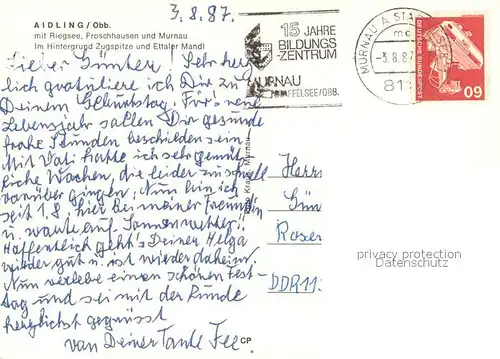 AIDLING/Obb.
mit Riegsee, Froschhausen und Murnau
Im Hintergrund Zugspitze und Ettaler Mandl
3.8.87.
15 JAHRE
BILDUNGS
ZENTRUM
MURNAU
STAFFELSEE/OBB.
MURNAU A STAF
mc
-3.8.87
811
DEUTSCHE BUNDESPOST
60
Lieber Günter! Sehr herz
lich gratuliere ich Dir zu
Deinem Geburtstag. Für's neue
Lebensjahr sollen Dir gesunde
frohe Stunden beschieden sein
Mit Vati hatte ich sehr gemüt
liche Wochen, die leider zu schnell
vorüber gingen. Nun bin ich
seit 1.8. hier bei meiner Freundin
u. warte auf Sonnenwetter.
Hoffentlich geht's Deiner Helga
wieder gut u. ist wieder daheim.
Nun verlebe einen schönen Fest-
tag und sei mit der Runde
herzlichst gegrüsst
von Deiner Tante Fee.
Murnau
CP
Herrn
Gün
Roser
DDR 11
privacy protection
©Ansichtskartenhandel.com